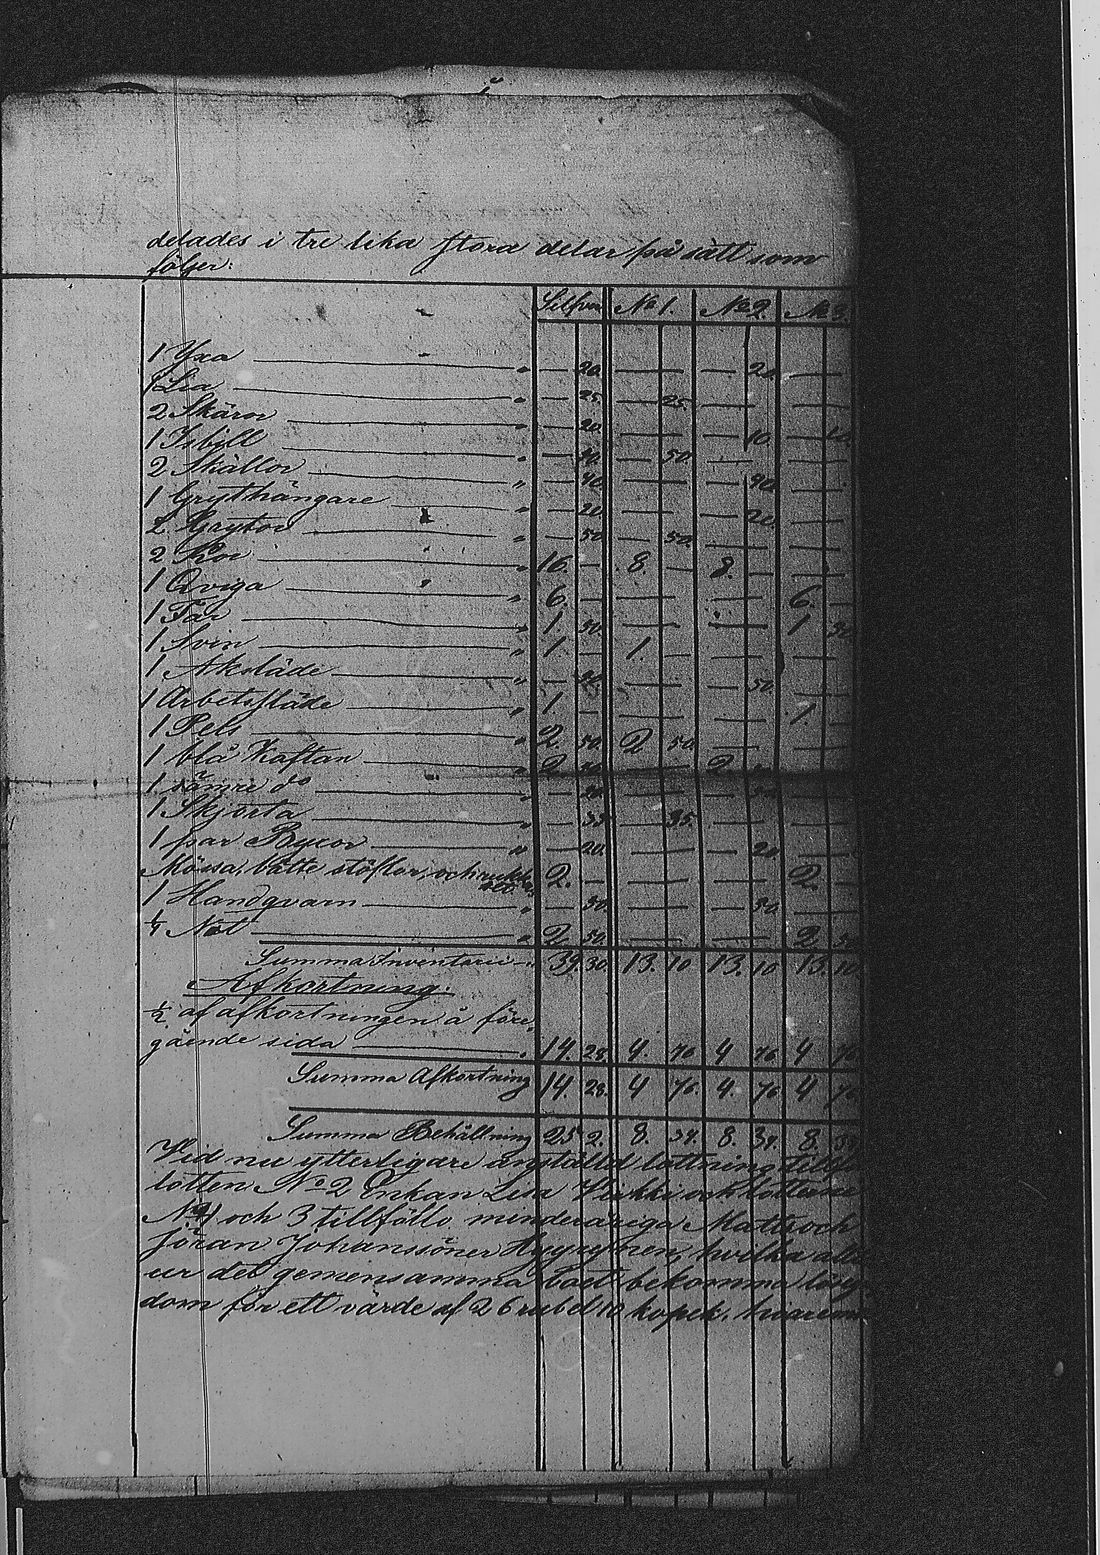 delades i tre lika stora delar på sätt som
följer:
Silfver No 1. No 2. No 3.
1 Yxa " — 20. — — — 20. — —
1 Lia " — 25. — 25. — — — —
2 Skäror " — 20. — — — 10. — 10
1 Isbill " — 50. — 50. — — — —
2 Skällor " — 40. — — — 40. — —
1 Grythängare " — 20. — — — 20. — —
2 Grytor " — 50. — 50. — — — —
2 Kor " 16. — 8. — 8. — — —
1 Qviga " 6. — — — — — 6. —
1 Får " 1. 50. — — — — 1 50
1 Svin " 1. — 1. — — — — —
1 Åksläde " — 50. — — — 50. — —
1 Arbetssläde " 1. — — — — — 1. —
1 Pels " 2. 50. 2 50. — — — —
1 blå Kaftan " 2 — — 2 — —
1 sämre do " — — — — — —
1 Skjorta " — 35. — 35. — — — —
1 par Byxor " — 20. — — — 20. — —
Mössa, Vätte stöflor, och 2. — — — — — 2. —
1 Handqvarn " — 30. — — — 30. — —
Not " 2 50. — — — — 2 50
Summa Inventarii " 39. 30. 13. 10 13. 10 13. 10
Afkortning.
½ af afkortningen å före
gående sida " 14. 28. 4. 76 4 76 4 76
Summa Afkortning 14. 28. 4 76. 4. 76 4 76
Summa Behållning 25 2. 8. 34. 8. 34. 8. 34
Vid nu ytterligare anställd lottning tillföll
lotten No 2 Enkan Lisa och lotterne
No 1 och 3 tillföllo minderåriga Matts och
Jöran Johanssöner Hyyrynen, hvilka
ur det gemensamma boet bekomma lösegen
dom för ett värde af 26 rubel 10 kopek. hvarom